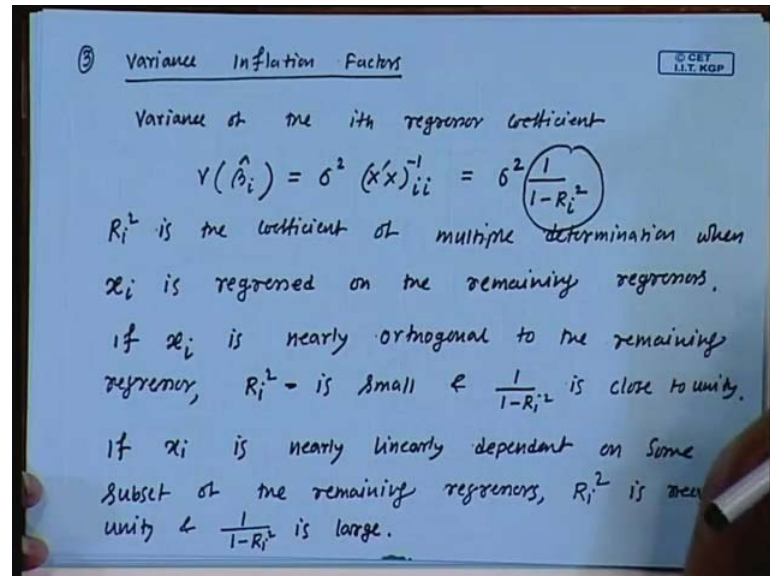 ③ Variance Inflation Factors
© CET
I.I.T. KGP
Variance of the ith regressor coefficient
V(β̂ᵢ) = σ² (x'x)⁻¹ᵢᵢ = σ² 1/(1-Rᵢ²)
Rᵢ² is the coefficient of multiple determination when
xᵢ is regressed on the remaining regressors.
If xᵢ is nearly orthogonal to the remaining
regressor, Rᵢ² - is small & 1/(1-Rᵢ²) is close to unity.
If xᵢ is nearly linearly dependent on some
subset of the remaining regressors, Rᵢ² is
unity & 1/(1-Rᵢ²) is large.